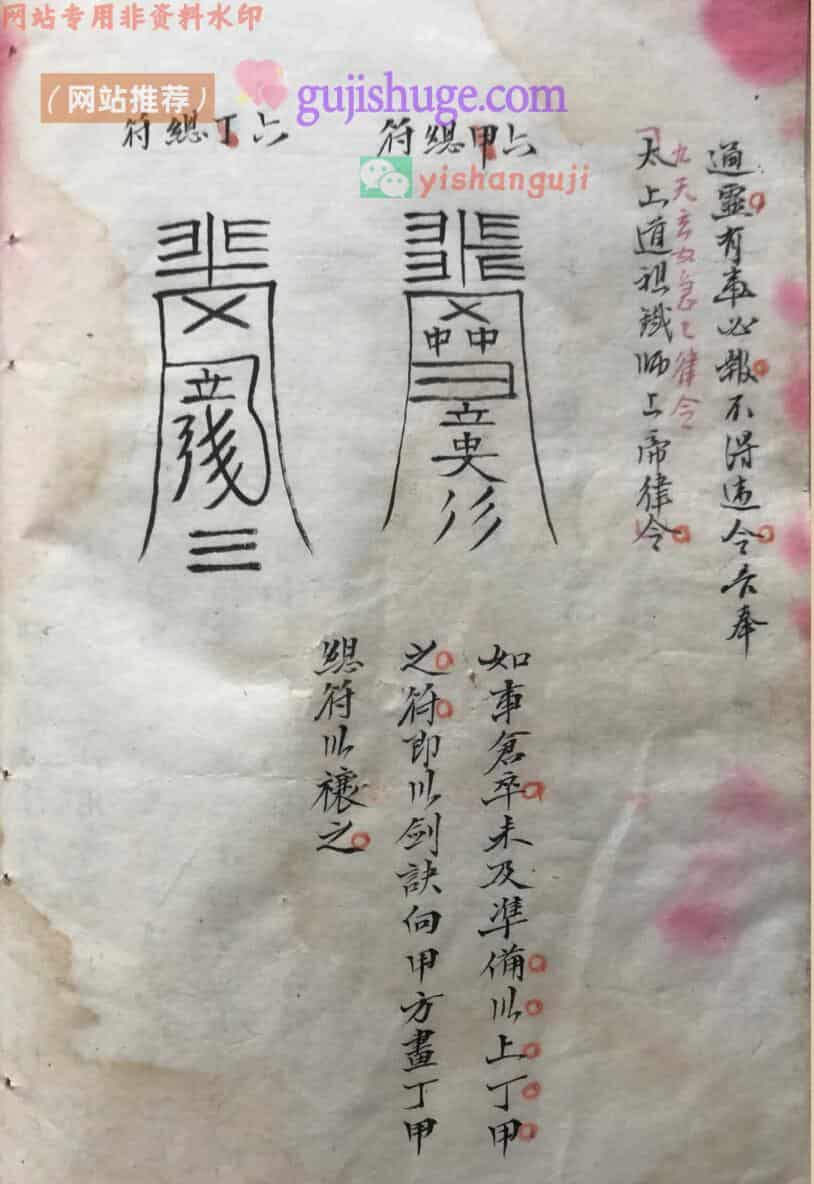 网站专用非资料水印
（网站推荐）
gujishuge.com
yishanguji
通靈有事必報不得違令吾奉
九天玄女急々律令
太上道祖鐵師上帝律令
六甲緫符
中中
立
六丁緫符
立
如事倉卒未及準備以上丁甲
之符即以剑訣向甲方畫丁甲
緫符以禳之